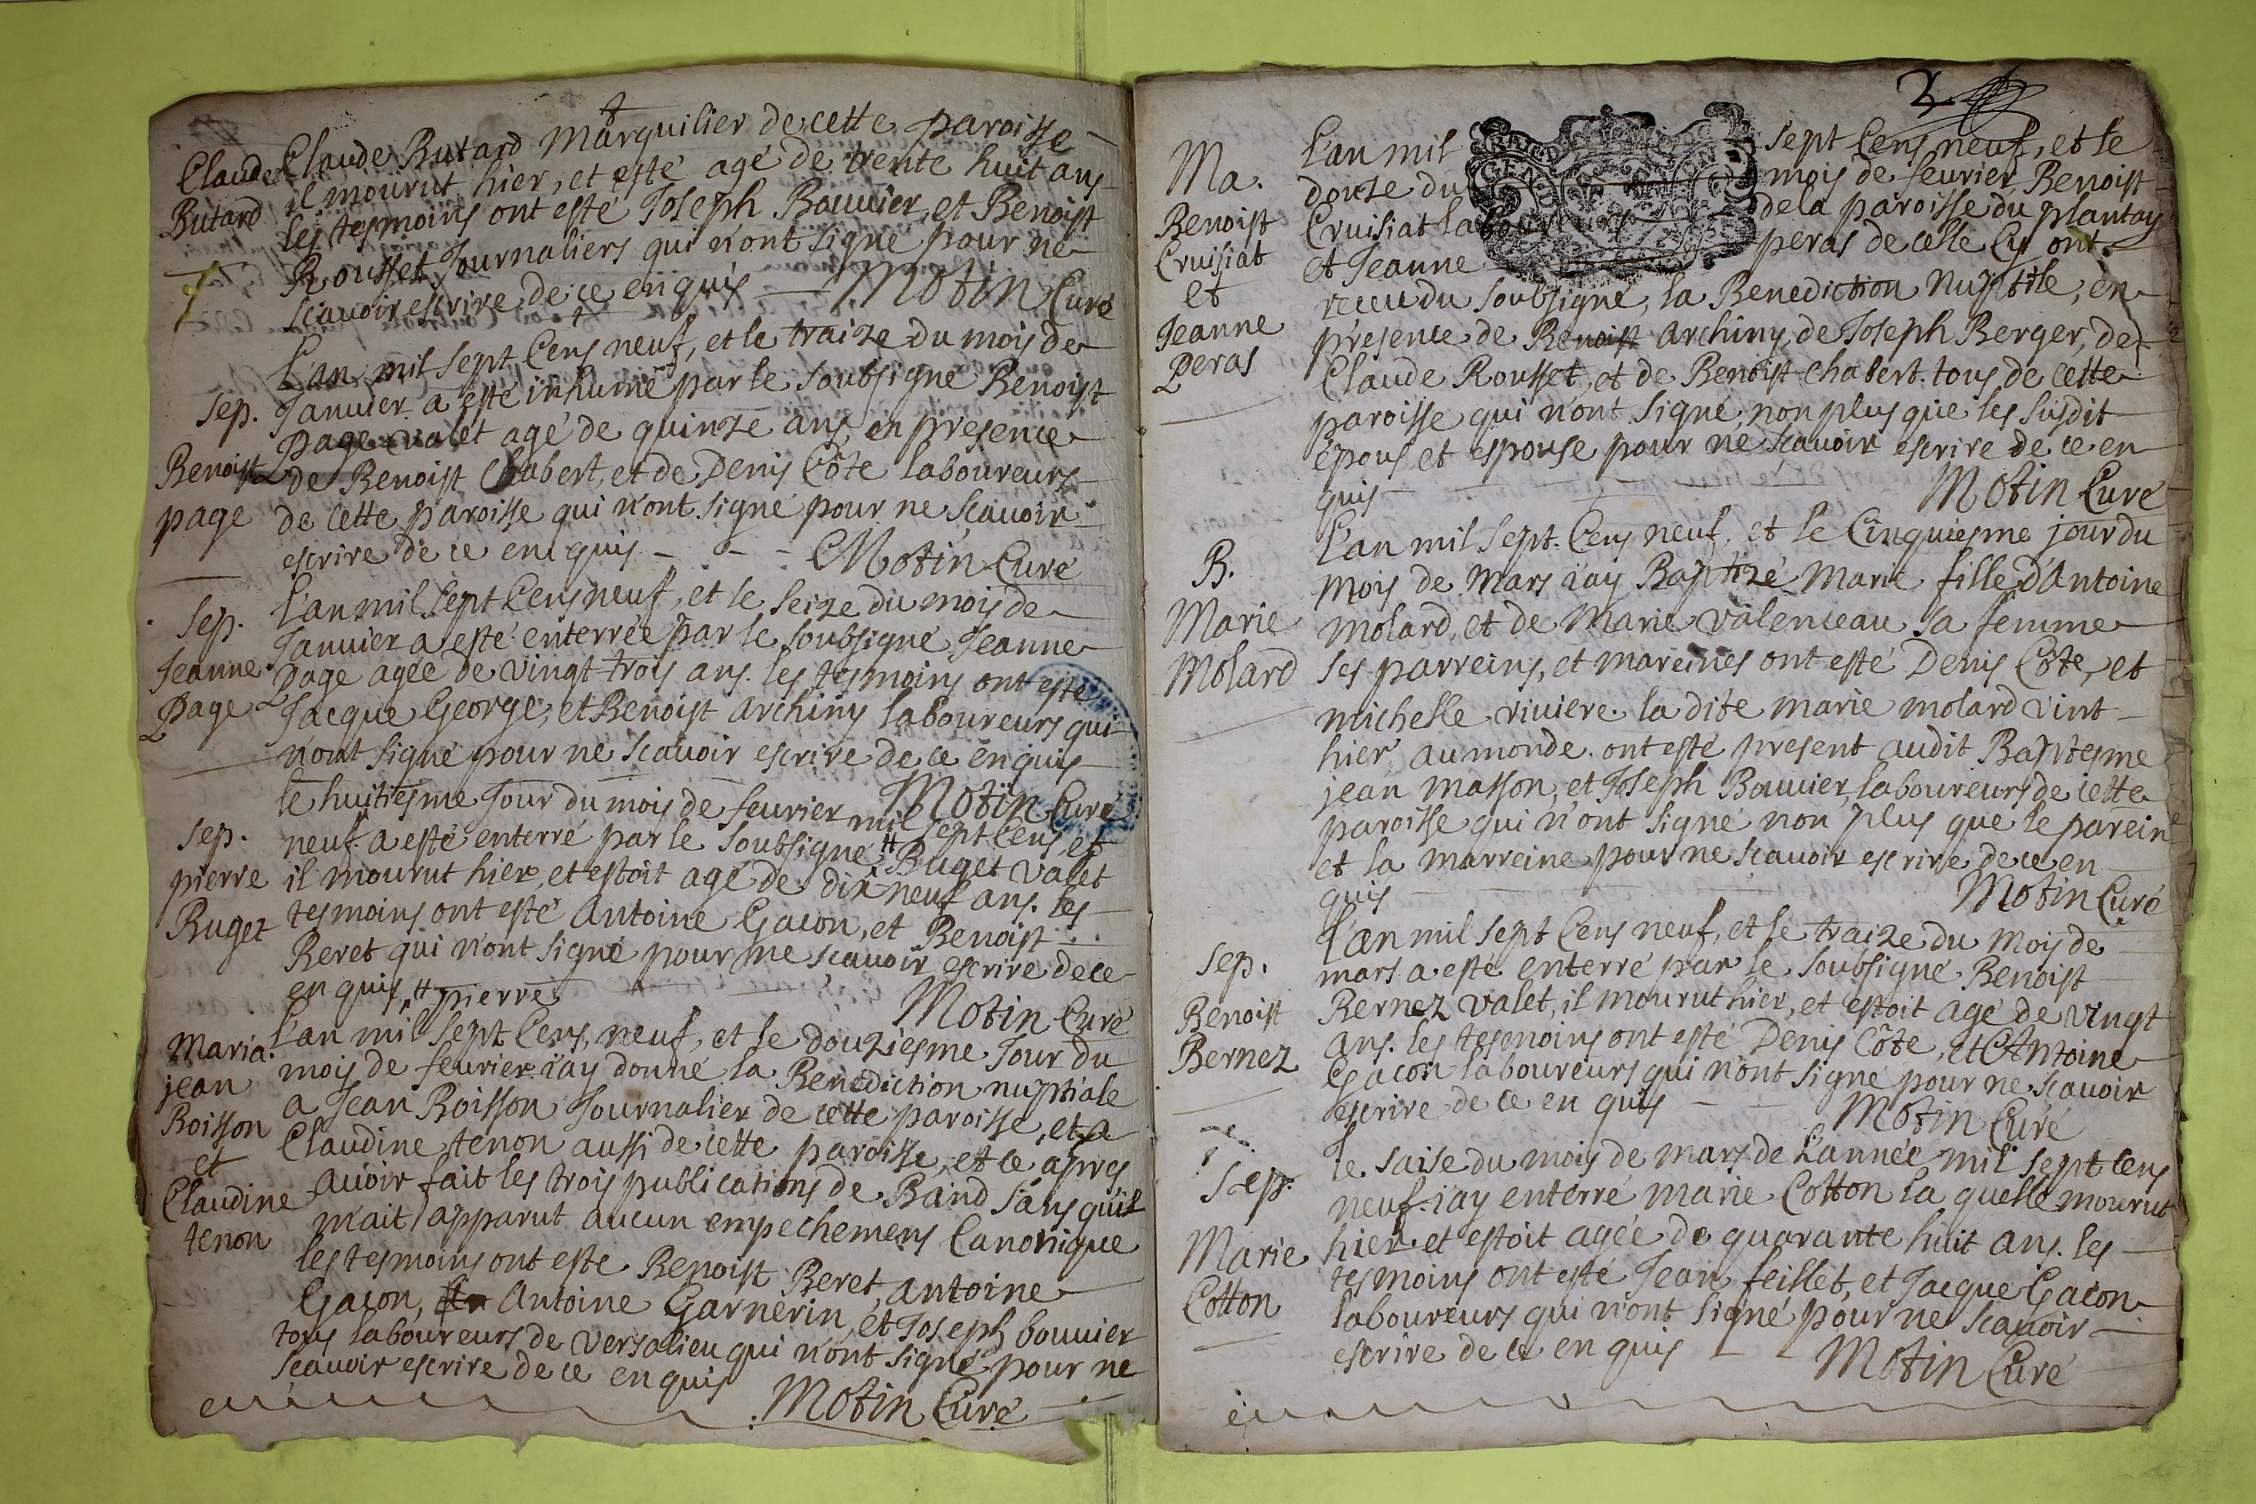 Claude Butard Marguilier de cette paroisse
Claude
il mourut hier, et esté agé de trente huit ans
Butard
les tesmoins ont esté Joseph Bouuier, et Benoist
Rousset Journaliers qui n'ont signé pour ne
scauoir escrire de ce enquis Motin Curé
L'an mil sept Cens neuf, et le traize du mois de
Sep.
Januier a esté inhumé par le soubsigné Benoist
page valet agé de quinze ans, en presence
Benoist
de Benoist Chabert, et de Denis Côte laboureurs
page
de cette paroisse qui n'ont signé pour ne scauoir
escrire de ce enquis - - - Motin Curé
L'an mil sept Cens neuf, et le seize du mois de
Sep.
Januier a esté enterrée par le soubsigné Jeanne
Jeanne
page agée de vingt-trois ans. les tesmoins ont esté
page
Jacque George, et Benoist archiny laboureurs qui
n'ont signé pour ne scauoir escrire de ce enquis
Motin Curé
le huitiesme Jour du mois de feurier mil sept Cens, et
Sep.
neuf. a esté enterré par le soubsigné # Buget valet
pierre
il mourut hier, et estoit agé de dix neuf ans. les
Buget
tesmoins ont esté Antoine Gacon, et Benoist
Beret qui n'ont signé pour ne scauoir escrire de ce
enquis # pierre Motin Curé
L'an mil sept Cens, neuf, et le douziesme Jour du
Maria.
mois de feurier. i'ay donné la Benediction nuptiale
jean
a Jean Boisson Journalier de cette paroisse, et a
Boisson
Claudine tenon aussi de cette paroisse, et ce apres
et
auoir fait les trois publications de Band sans qu'il
Claudine
m'ait apparut aucun empechemens Canonique
tenon
les tesmoins ont este Benoist Beret, antoine
Gacon, Antoine Garnerin, et Joseph bouuier
tous laboureurs de versalieu qui n'ont signé pour ne
scauoir escrire de ce enquis
Motin Curé
2
L'an mil sept Cens neuf, et le
Ma.
douze du mois de feurier Benoist
Benoist
Cruisiat laboureur de la paroisse du plantay
Cruisiat
et Jeanne peras de celle Cy ont
et
receu du soubsigné, la Benediction Nuptile, en
Jeanne
presence de Benoist archiny, de Joseph Berger, de
Peras
Claude Rousset, et de Benoist Chabert. tous de cette
paroisse qui n'ont signé, non plus que les susdit
epous, et espouse pour ne scauoir escrire de ce en
quis Motin Curé
L'an mil sept. Cens neuf. et le Cinquiesme jour du
B.
mois de Mars i'ay Baptizé Marie fille d'Antoine
Marie
molard, et de Marie valenceau sa femme
Molard
ses parreins, et mareines ont esté Denis Côte, et
michelle riuiere. la dite marie molard vint
hier au monde. ont esté present audit Baptesme
jean masson, et Joseph Bouuier, laboureurs de cette
paroisse qui n'ont signé non plus que le parein
et la marreine pour ne scauoir escrire de ce en
quis Motin Curé
L'an mil sept Cens neuf, et le traize du mois de
Sep.
mars. a esté enterré par le soubsigné Benoist
Benoist
Bernez valet, il mourut hier, et estoit agé de vingt
Bernez
ans. les tesmoins ont esté Denis Côte, et Antoine
Gacon laboureurs qui n'ont signé pour ne scauoir
escrire de ce en quis - - Motin Curé
le. saise du mois de mars de L'année mil sept cens
Sep.
neuf. i'ay enterré marie Cotton la quelle mourut
Marie
hier. et estoit agée de quarante huit ans. les
Cotton
tesmoins ont esté Jean feillet, et Jacque Gacon
laboureurs qui n'ont signé pour ne scauoir
escrire de ce en quis Motin Curé